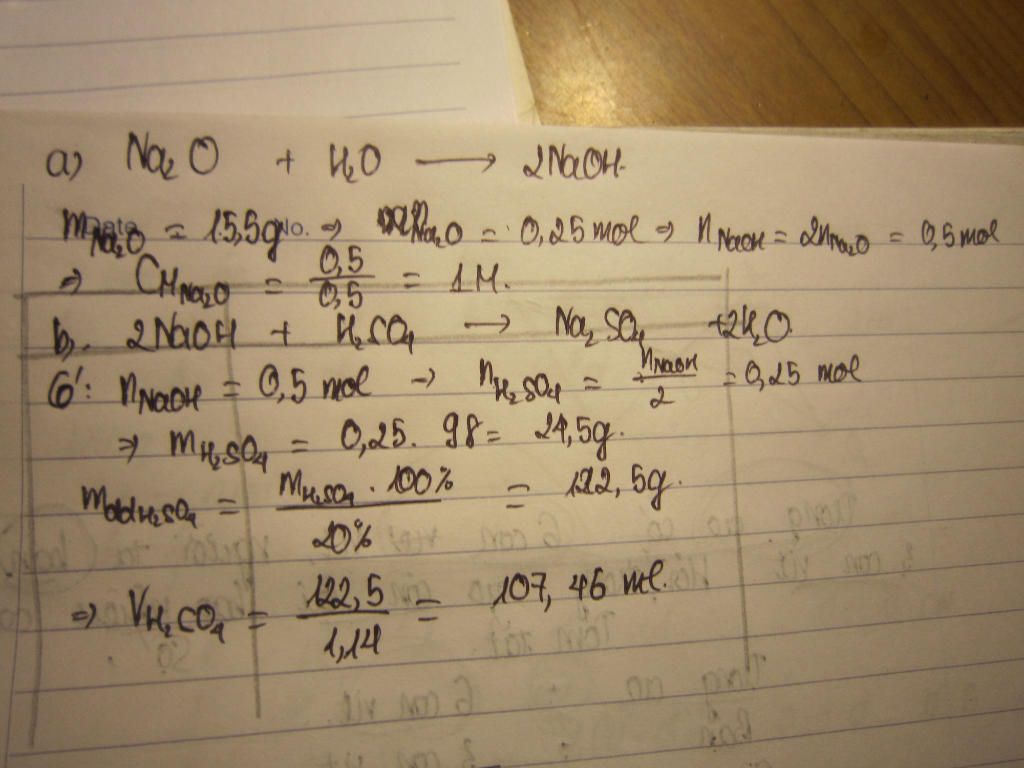 a) Na₂O + H₂O → 2NaOH.
m Na₂O = 15,5g No. ⇒ n Na₂O = 0,25 mol ⇒ n NaOH = 2n Na₂O = 0,5 mol
⇒ CM Na₂O = 0,5/0,5 = 1M.
b). 2NaOH + H₂SO₄ → Na₂SO₄ + 2H₂O
Có: n NaOH = 0,5 mol → n H₂SO₄ = n NaOH/2 = 0,25 mol
⇒ m H₂SO₄ = 0,25. 98 = 24,5g.
mdd H₂SO₄ = m H₂SO₄ . 100%/20% = 122,5g.
⇒ V H₂CO₄ = 122,5/1,14 = 107,46 ml.